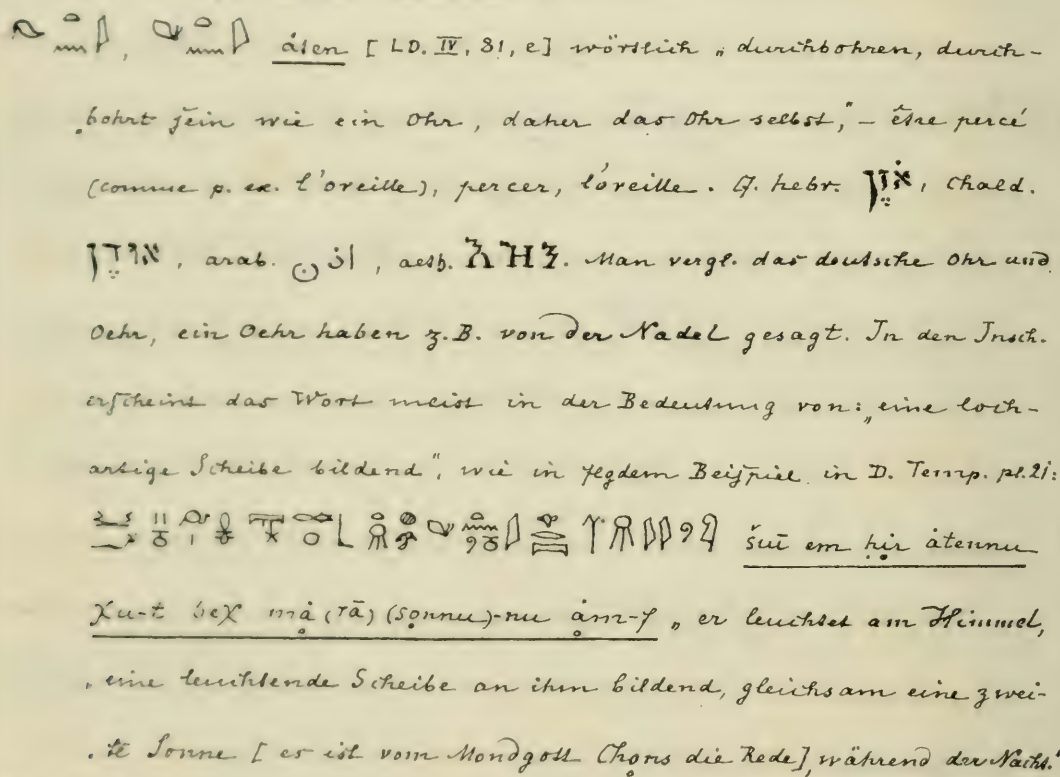 , áten [LD. IV, 81, e] wörtlich „durchbohren, durch-
„bohrt sein wie ein Ohr, daher das Ohr selbst," – être percé
(comme p. ex. l'oreille), percer, l'oreille. Cf. hebr. אֹזֶן, chald.
אוּדֶן, arab. اذن, aeth. እዝን. Man vergl. das deutsche Ohr und
Oehr, ein Oehr haben z.B. von der Nadel gesagt. In den Insch.
erscheint das Wort meist in der Bedeutung von: „eine loch-
artige Scheibe bildend", wie in flgdem Beispiel in D. Temp. pl. 21:
šui em ḥir átennu
χu-t beχ má (rā) (sonnu)-nu ám-f „er leuchtet am Himmel,
„eine leuchtende Scheibe an ihm bildend, gleichsam eine zwei-
„te Sonne [es ist vom Mondgott Chons die Rede], während der Nacht."